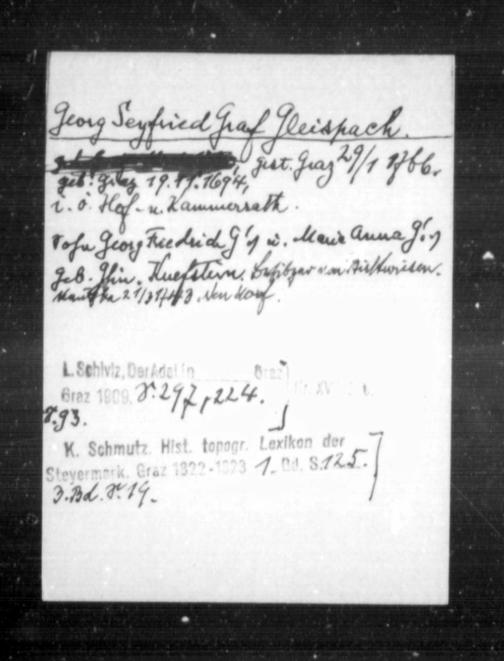 Georg Seyfried Graf Gleispach.
gest. Graz 29/1 1766.
geb. Graz 19.11.1694,
i. ö. Hof- u. Kammerrath.
Sohn Georg Friedrich G's u. Maria Anna G's
geb. Kuefstein. Besitzer von
L. Schiviz, Der Adel in Graz
Graz 1909. S. 297, 224.
S. 93.
K. Schmutz. Hist. topogr. Lexikon der
Steyermark. Graz 1822-1823 1. Bd. S. 125.
3. Bd. S. 19.